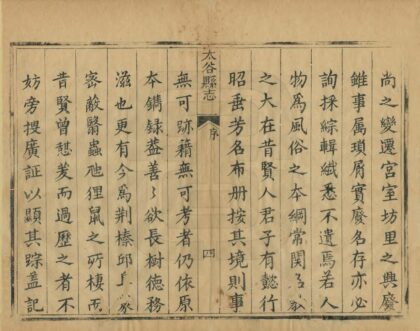 尚之變遷宮室坊里之興廢
雖事属瑣屑實廢名存亦必
詢採綜輯纎悉不遺焉若人
物爲風俗之本綱常関
之大在昔賢人君子有懿行
昭垂芳名布册按其境則事
太谷縣志
序
四
無可跡籍無可考者仍依原
本鐫録蓋善善欲長樹德務
滋也更有今爲荆榛邱
宻敵翳蟲虵狸鼠之所棲而
昔賢曾憇羙而過歴之者不
妨旁搜廣証以顯其踪蓋記